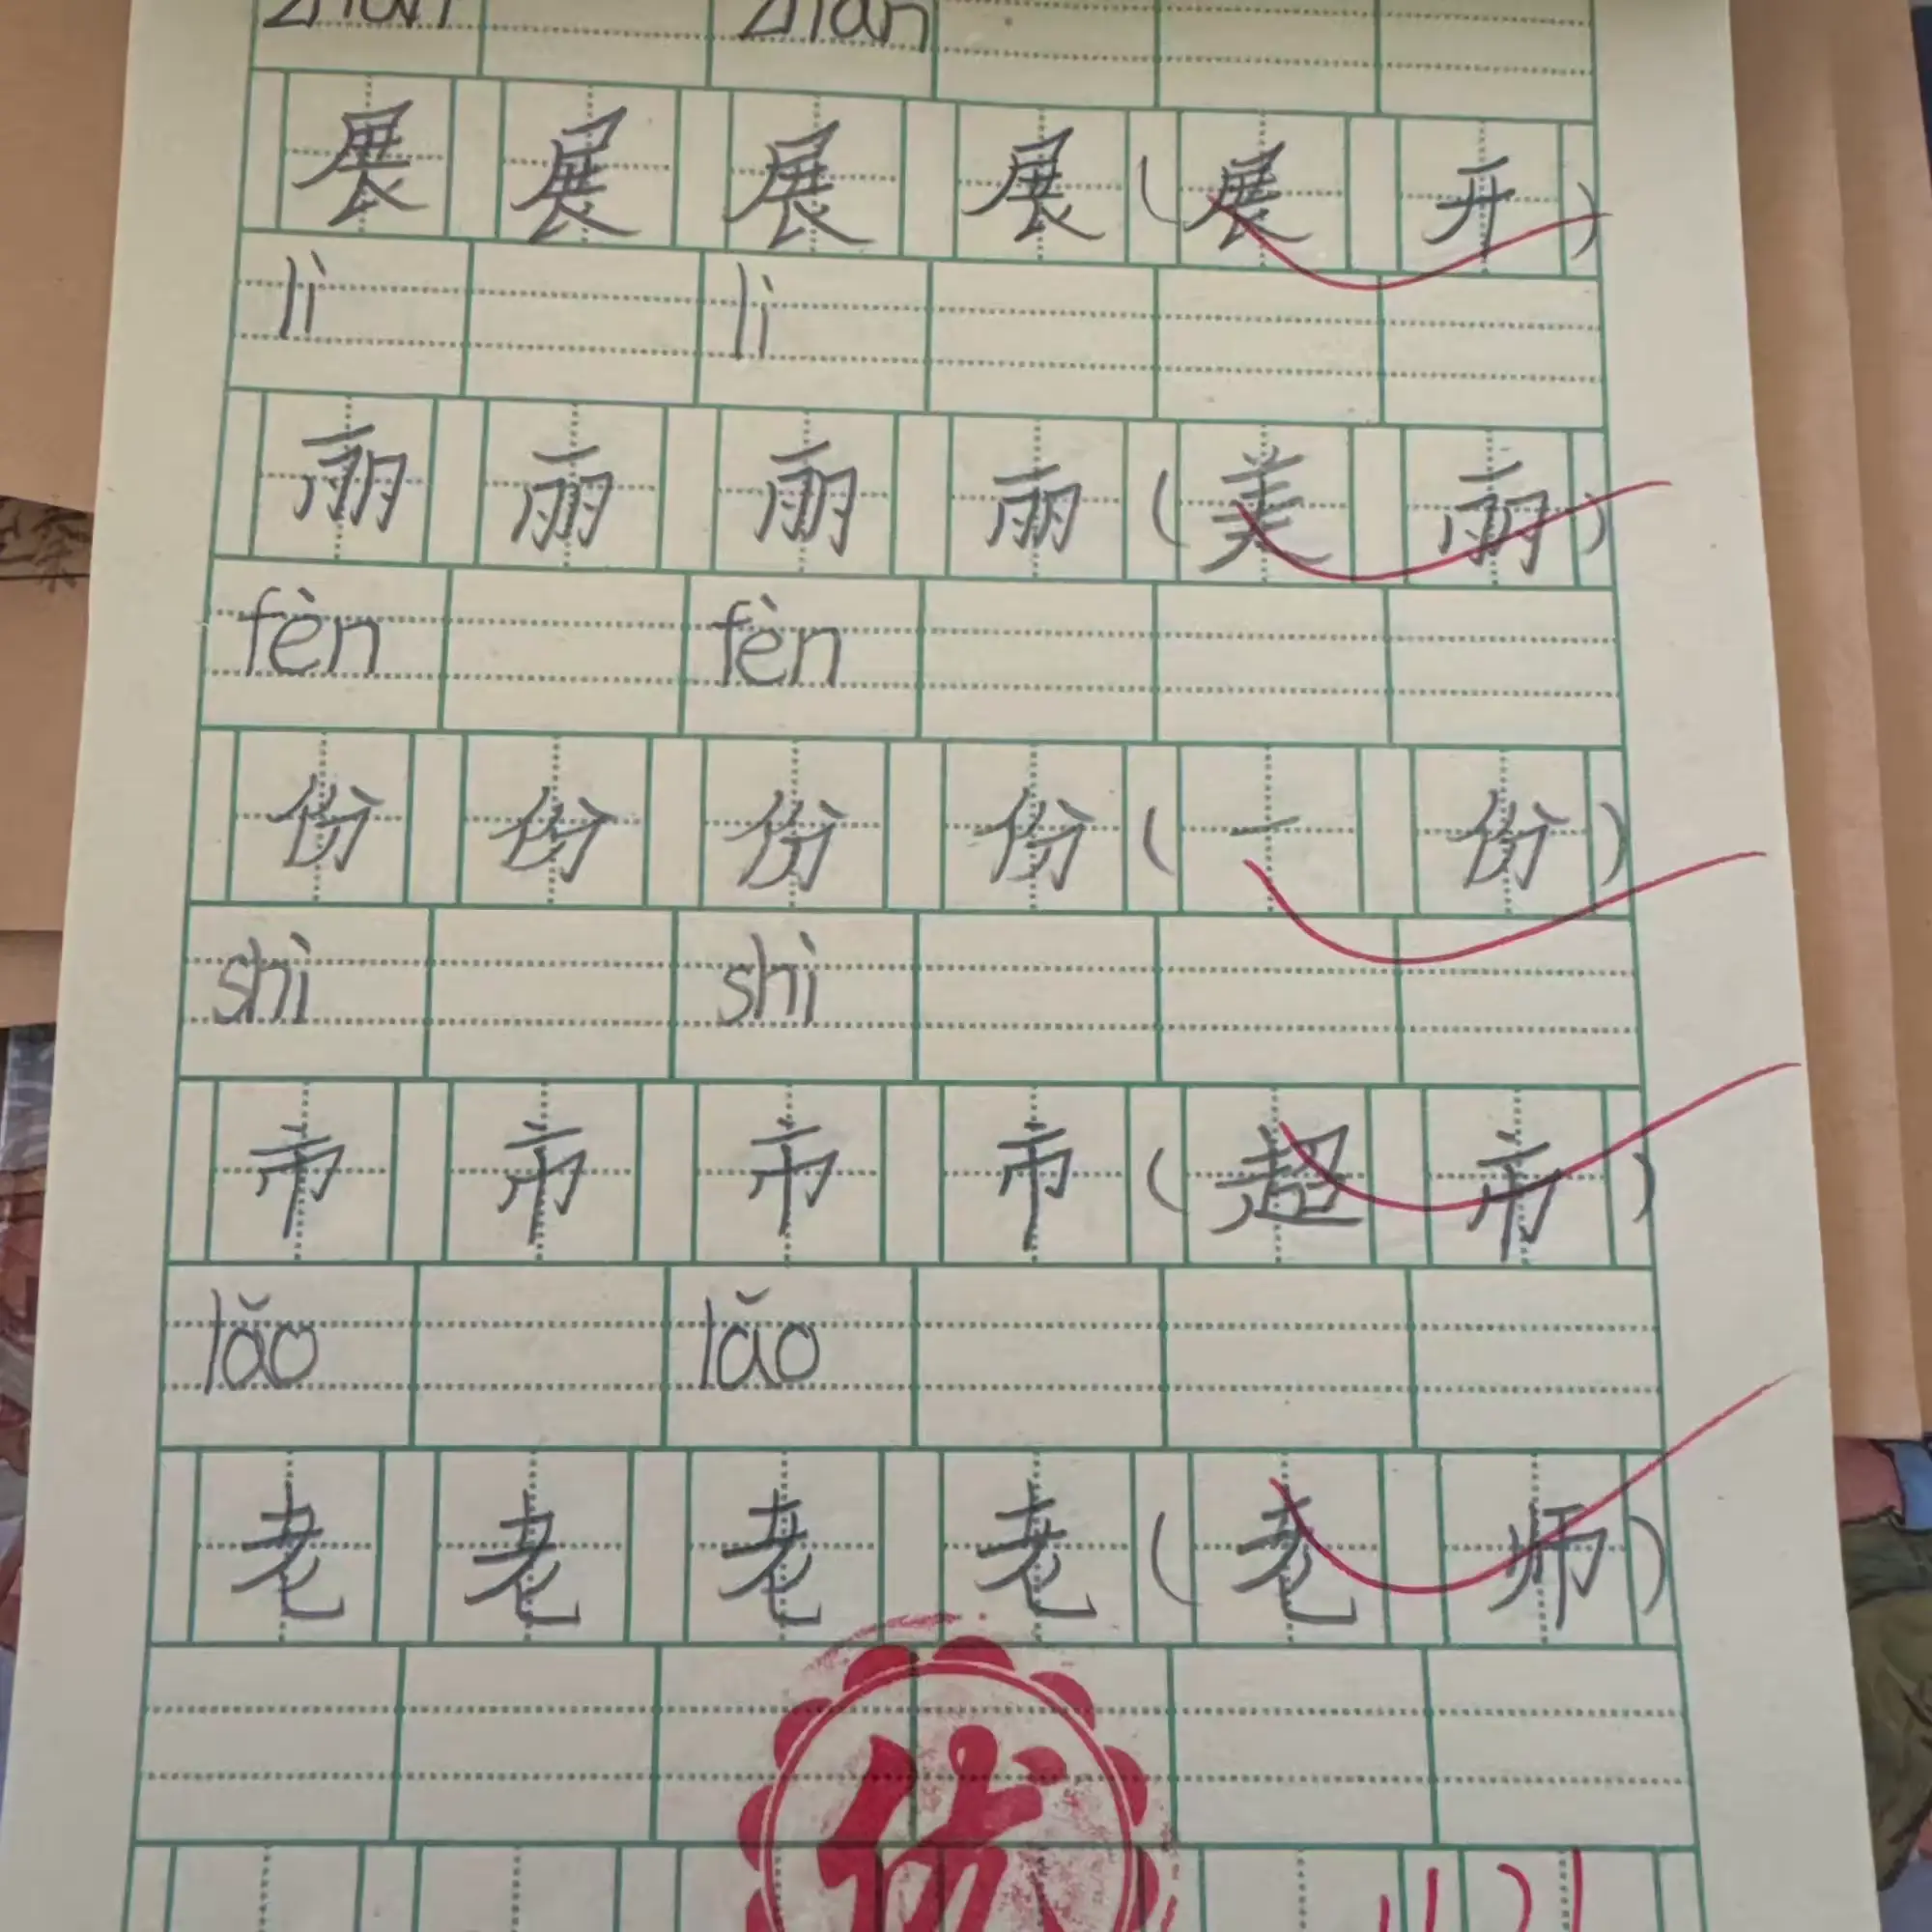 zhǎn zhǎn
展 展 展 展 ( 展 开 )
lì lì
丽 丽 丽 丽 ( 美 丽 )
fèn fèn
份 份 份 份 ( 一 份 )
shì shì
市 市 市 市 ( 超 市 )
lǎo lǎo
老 老 老 老 ( 老 师 )
优